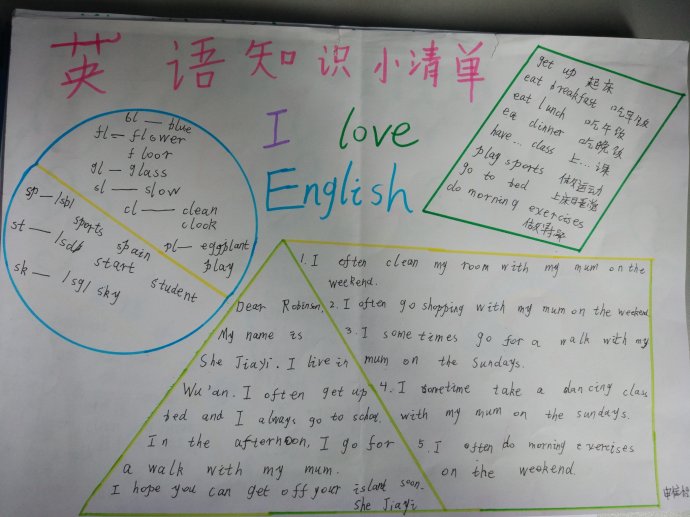 英语知识小清单
I love
English
bl — blue
fl — flower
floor
gl — glass
sl — slow
cl — clean
clook
pl — eggplant
play
sp — /sb/
sports
spain
st — /sd/
start
student
sk — /sg/ sky
get up 起床
eat breakfast 吃早饭
eat lunch 吃午饭
ea dinner 吃晚饭
have... class 上...课
play sports 做运动
go to bed
do morning exercises
Dear Robinson,
My name is
She Jiayi. I live in
Wu'an. I often get up
bed and I always go to school.
In the afternoon, I go for
a walk with my mum.
I hope you can get off your island soon.
She Jiayi
1. I often clean my room with my mum on the
weekend.
2. I often go shopping with my mum on the weekend
3. I sometimes go for a walk with my
mum on the Sundays.
4. I sometime take a dancing class
with my mum on the sundays.
5. I often do morning exercises
on the weekend.